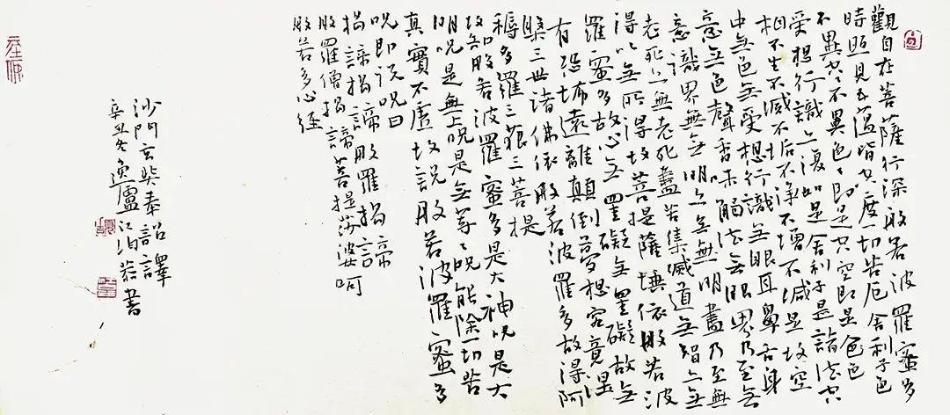 觀自在菩薩行深般若波羅蜜多
時照見五蘊皆空度一切苦厄舍利子色
不異空空不異色〻即是空空即是色
受想行識亦復如是舍利子是諸法空
相不生不滅不垢不淨不增不減是故空
中無色無受想行識無眼耳鼻舌身
意無色聲香味觸法無眼界乃至無
意識界無無明亦無無明盡乃至無
老死亦無老死盡無苦集滅道無智亦無
得以無所得故菩提薩埵依般若波
羅蜜多故心無罣礙無罣礙故無
有恐怖遠離顛倒夢想究竟涅
槃三世諸佛依般若波羅多故得阿
耨多羅三藐三菩提
故知般若波羅蜜多是大神咒是大
明咒是無上咒是無等〻咒能除一切苦
真實不虛故說般若波羅蜜多
咒即說咒曰
揭諦揭諦般羅揭諦
般羅僧揭諦菩提莎婆呵
般若多心經
沙門玄奘奉詔譯
辛丑冬逸廬江泊恭書